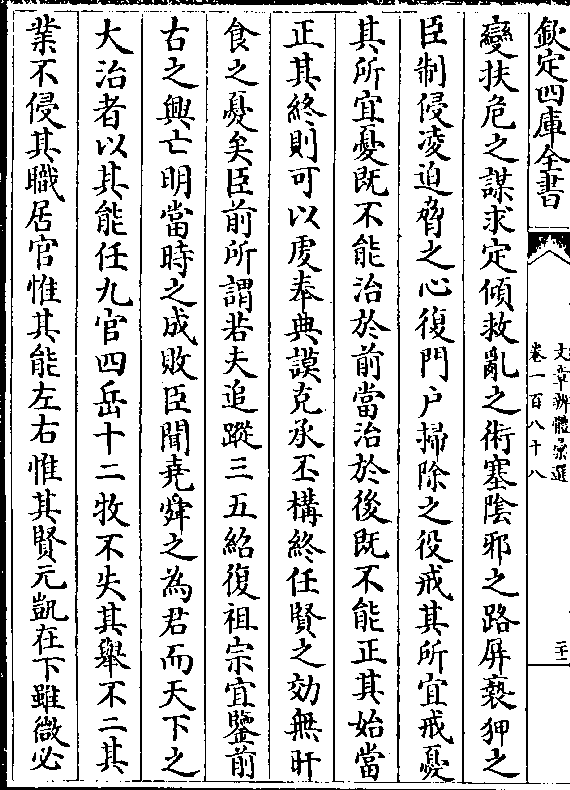 欽定四庫全書
文章辨體彙選
卷一百八十八
二十二
變扶危之謀求定傾救亂之術塞陰邪之路屏䙝狎之
臣制侵凌迫脅之心復門户掃除之役戒其所宜戒憂
其所宜憂既不能治於前當治於後既不能正其始當
正其終則可以䖍奉典謨克承丕構終任賢之効無旰
食之憂矣臣前所謂若夫追蹤三五紹復祖宗宜鑒前
古之興亡明當時之成敗臣聞堯舜之為君而天下之
大治者以其能任九官四岳十二牧不失其舉不二其
業不侵其職居官惟其能左右惟其賢元凱在下雖微必